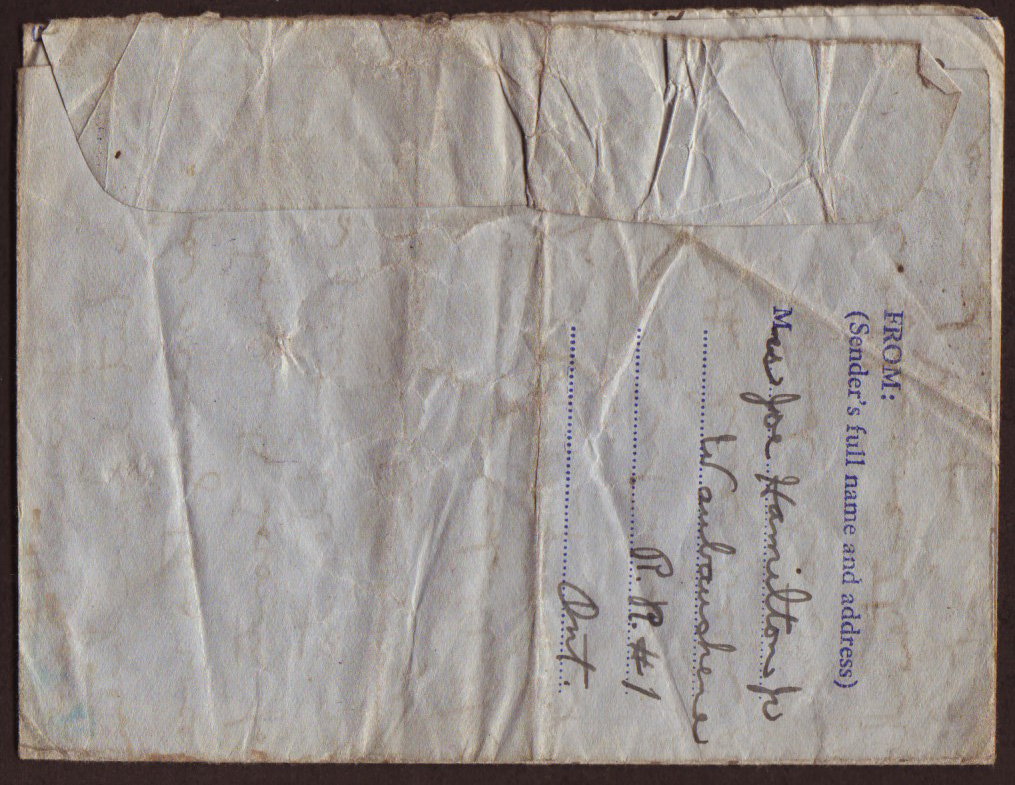 FROM:
(Sender's full name and address)
Mrs Joe Hamilton Jr
Waubaushene
R.R. #1
Ont.